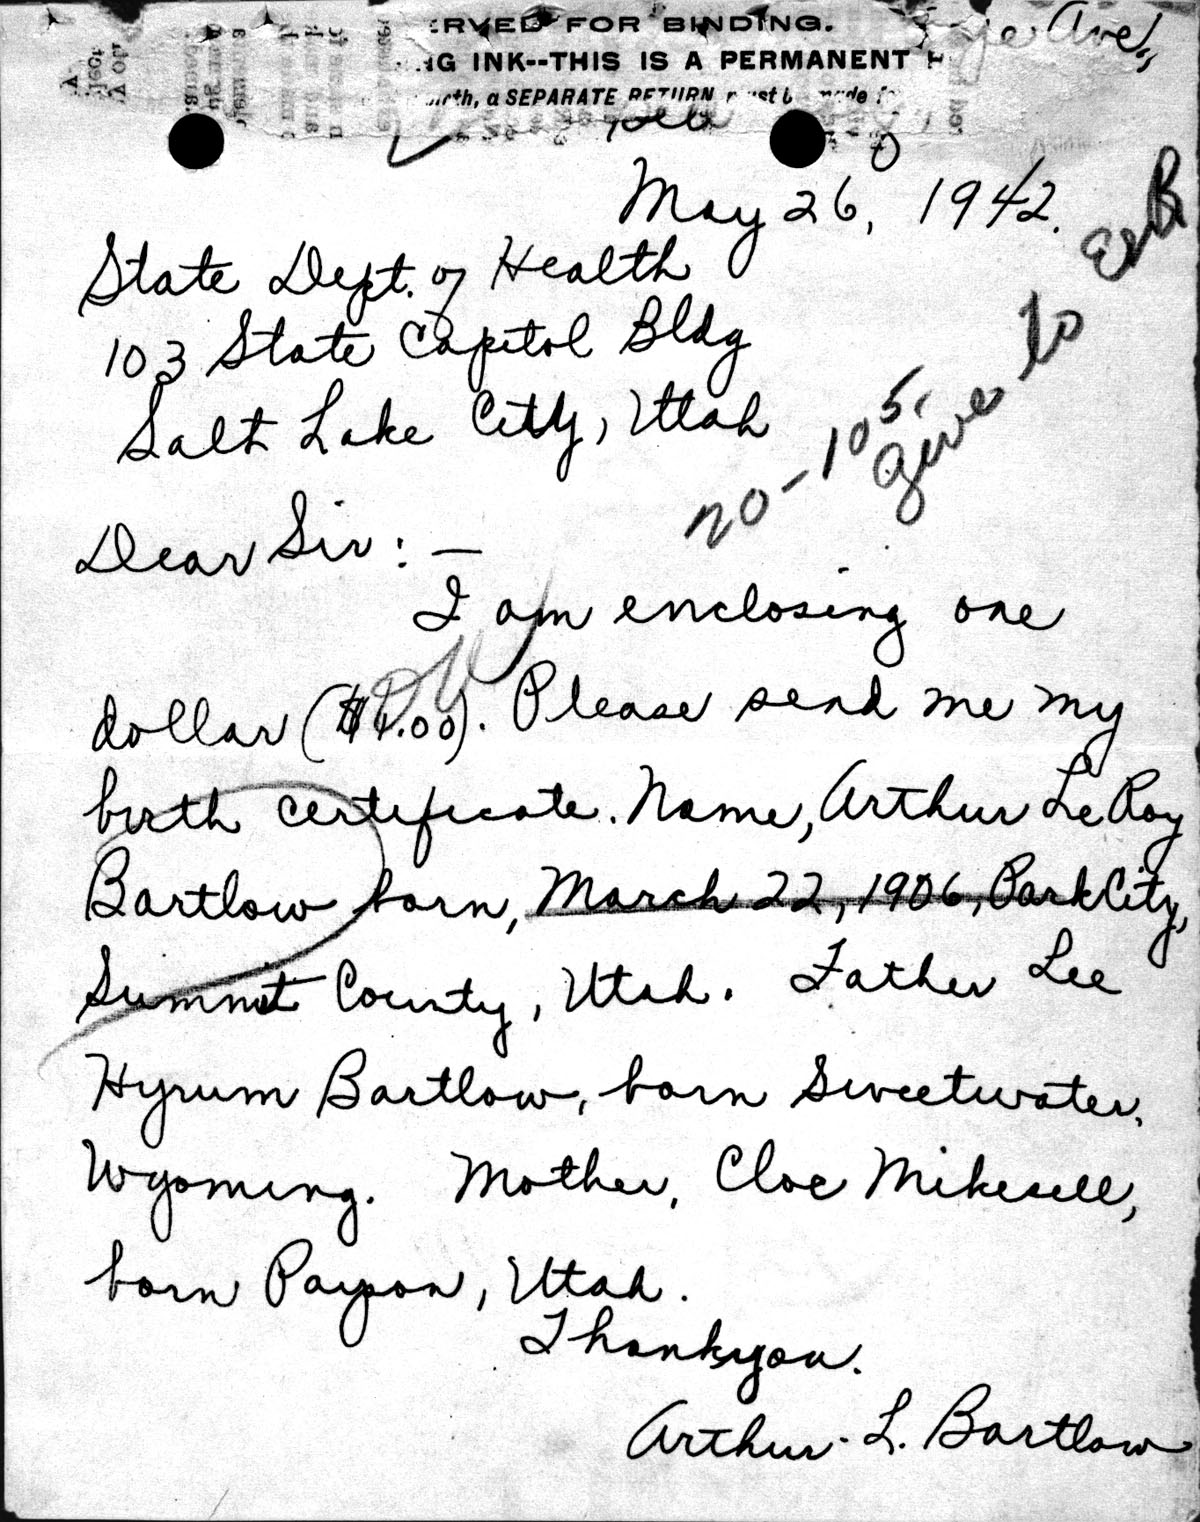 RVED FOR BINDING.
NG INK--THIS IS A PERMANENT
a SEPARATE RETURN must be made
Ave.,
May 26, 1942.
State Dept. of Health
103 State Capitol Bldg
Salt Lake City, Utah
20-105.
Give to
Dear Sir: —
I am enclosing one
dollar ($1.00). Please send me my
birth certificate. Name, Arthur LeRoy
Bartlow born, March 22, 1906, Park City,
Summit County, Utah. Father Lee
Hyrum Bartlow, born Sweetwater,
Wyoming. Mother, Cloe Mikesell,
born Payson, Utah.
Thankyou.
Arthur L. Bartlow